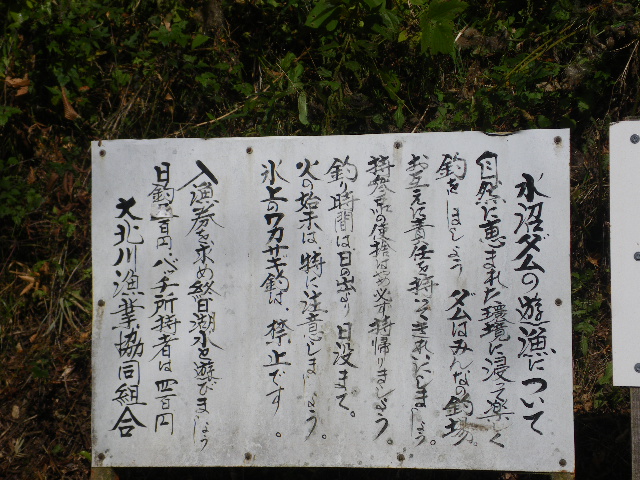 水沼ダムの遊漁について
自然に恵まれた環境に浸って楽しく
釣をしましょう ダムはみんなの釣場
お互いに責任を持ってきれいにしましょう。
持参品の使捨はやめ必ず持帰りましょう。
釣り時間は日の出より日没まで。
火の始末は、特に注意しましょう。
氷上のワカサギ釣は、禁止です。
入漁券を求め終日湖水を遊びましょう
日釣 百円 バッチ所持者は四百円
大北川漁業協同組合